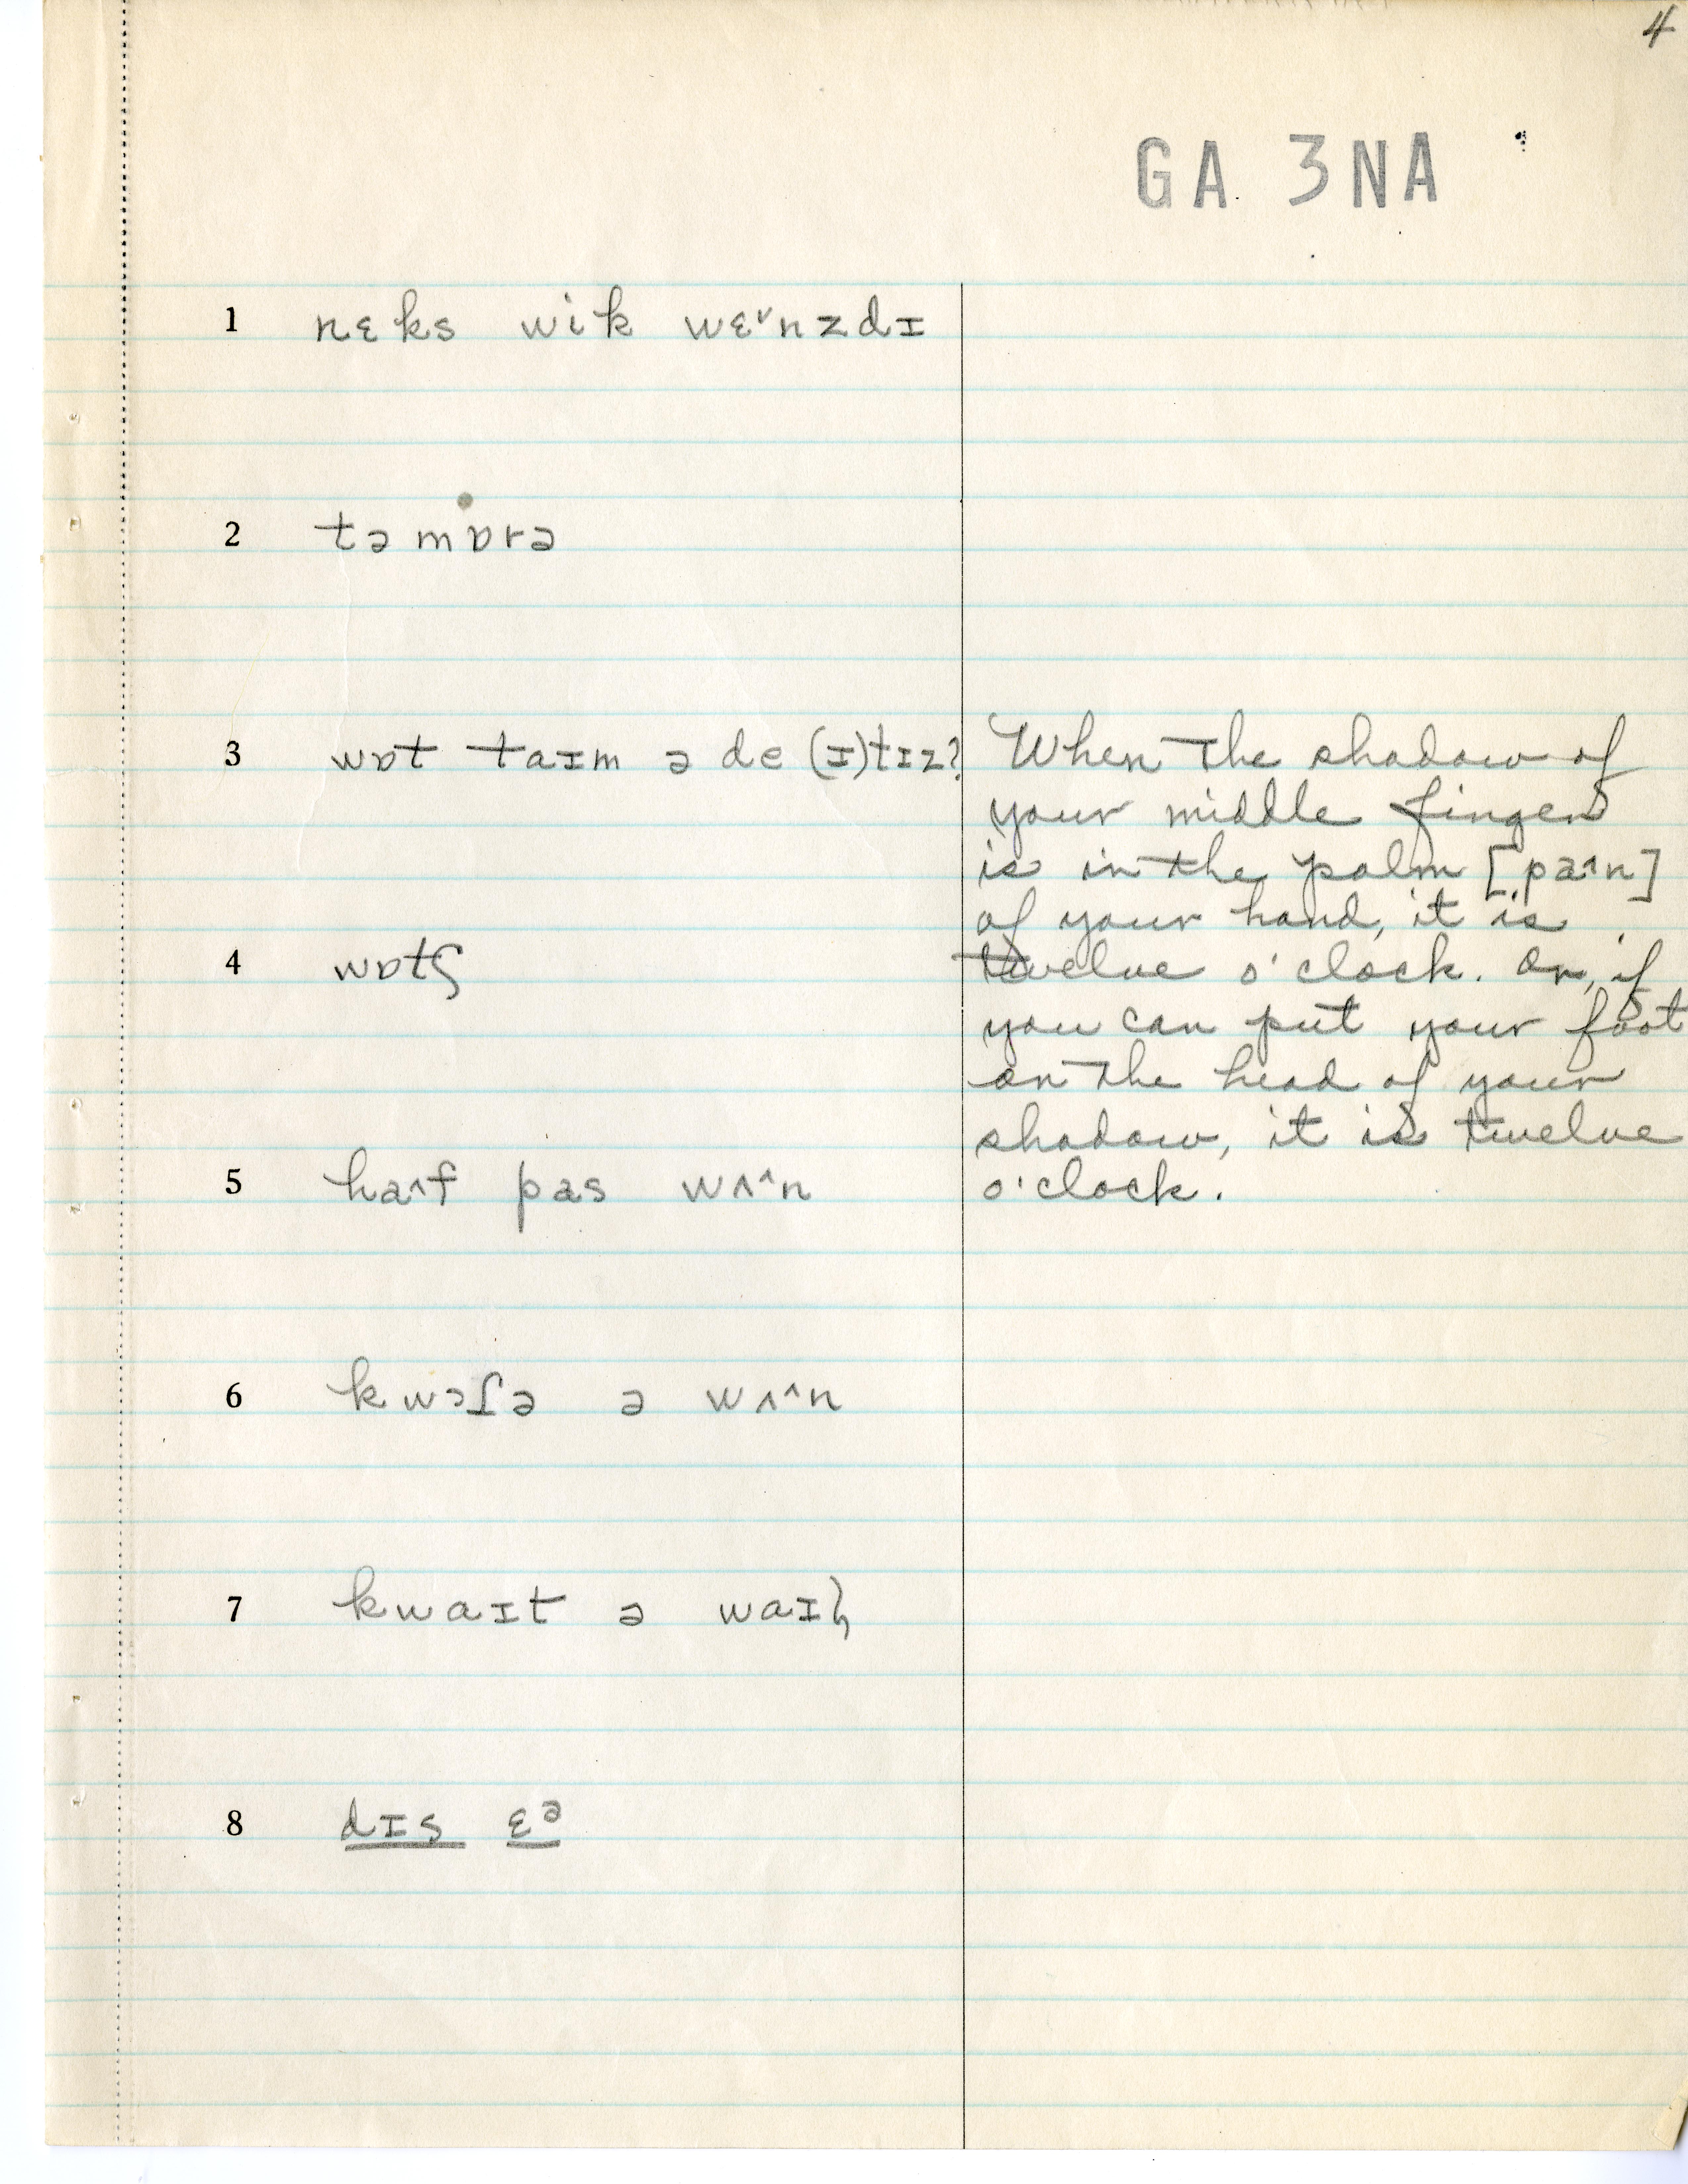 4
GA 3NA
1 nɛks wik wɛ˅nzdɪ
2 təmɒrə
3 wɒt taɪm ə de(ɪ)tɪz?
When the shadow of
your middle finger
is in the palm [pa˄n]
of your hand, it is
twelve o'clock. Or, if
you can put your foot
on the head of your
shadow, it is twelve
o'clock.
4 wɒtʃ
5 ha˄f pas wʌ˄n
6 kwɔʃə ə wʌ˄n
7 kwaɪt ə waɪ
8 dɪs ɛᵊ